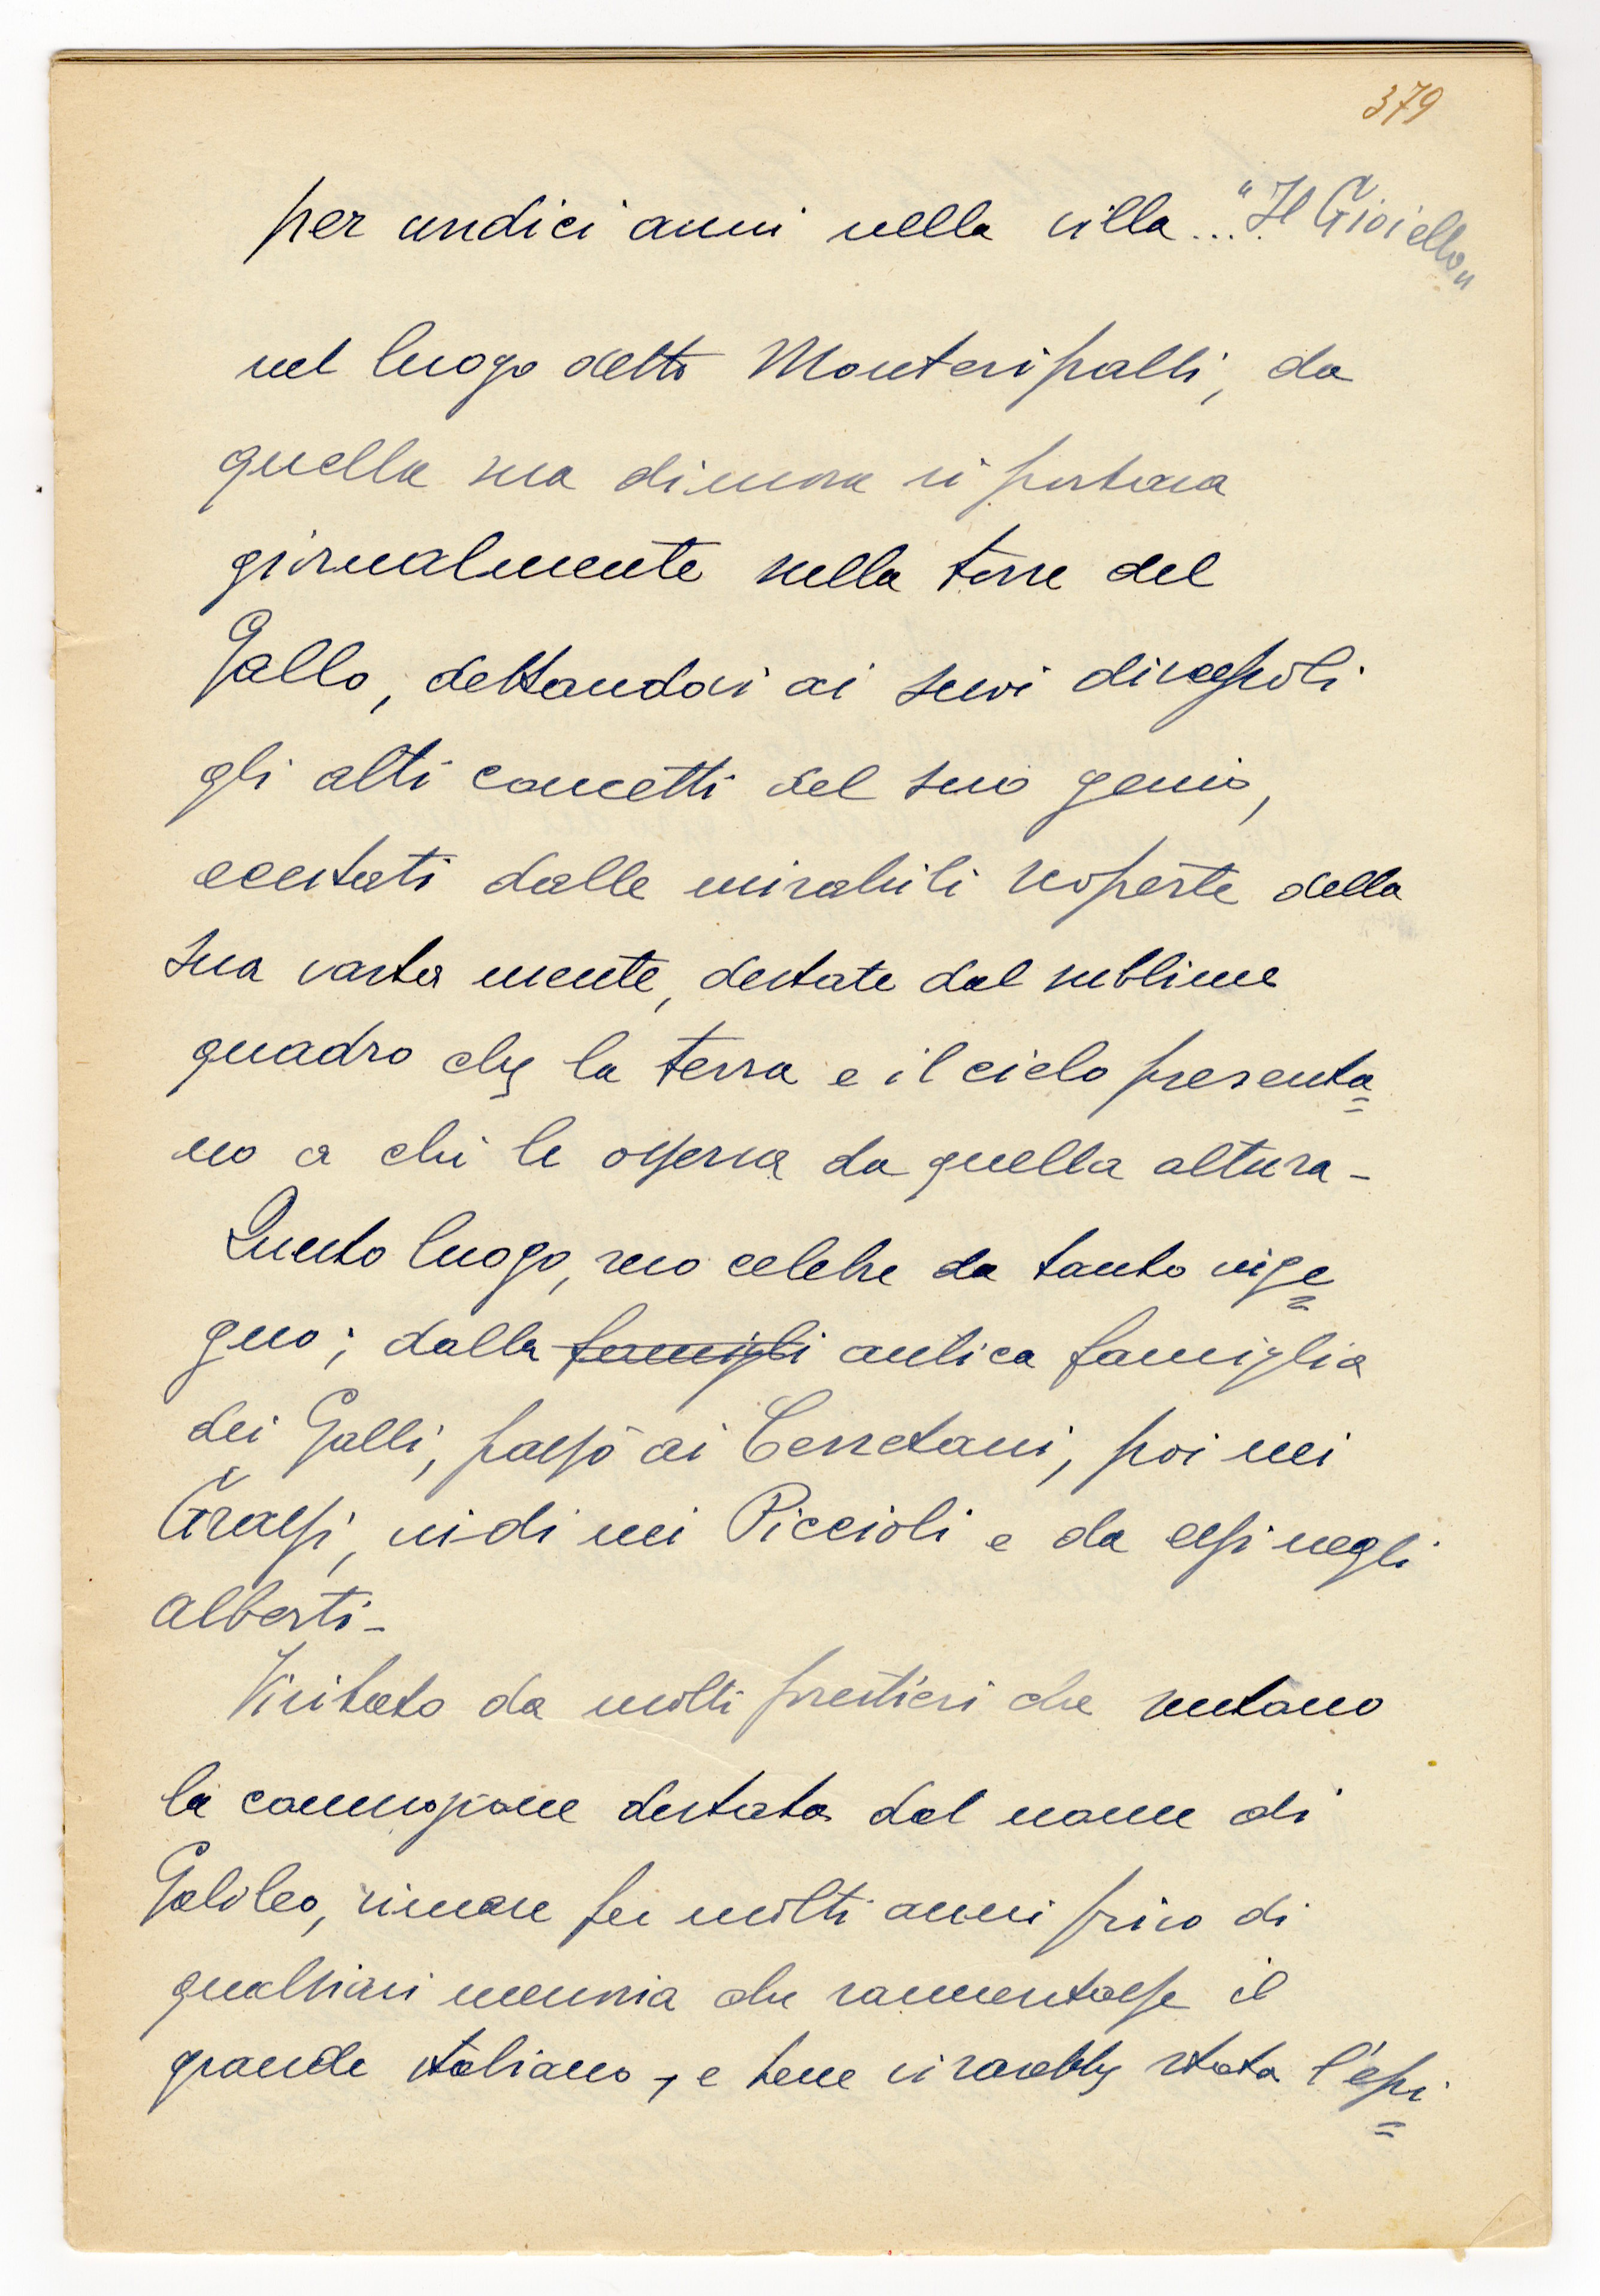 379
per undici anni nella villa... "Il Gioiello"
nel luogo detto Monteripalli, da
quella sua dimora si portava
giornalmente nella torre del
Gallo, dettandovi ai suoi discepoli
gli alti concetti del suo genio,
eccitati dalle mirabili scoperte della
sua vasta mente, destate dal sublime
quadro che la terra e il cielo presenta=
no a chi le osserva da quella altura-
Questo luogo, reso celebre da tanto inge=
gno; dalla famigli antica famiglia
dei Galli, passò ai Cerretani, poi nei
Grassi, indi nei Piccioli e da essi negli
alberti-
Visitato da molti forestieri che sentano
la commozione destata dal nome di
Galileo, rimase per molti anni privo di
qualsiasi memoria che rammentasse il
grande italiano, e bene vi sarebbe stata l'epi=